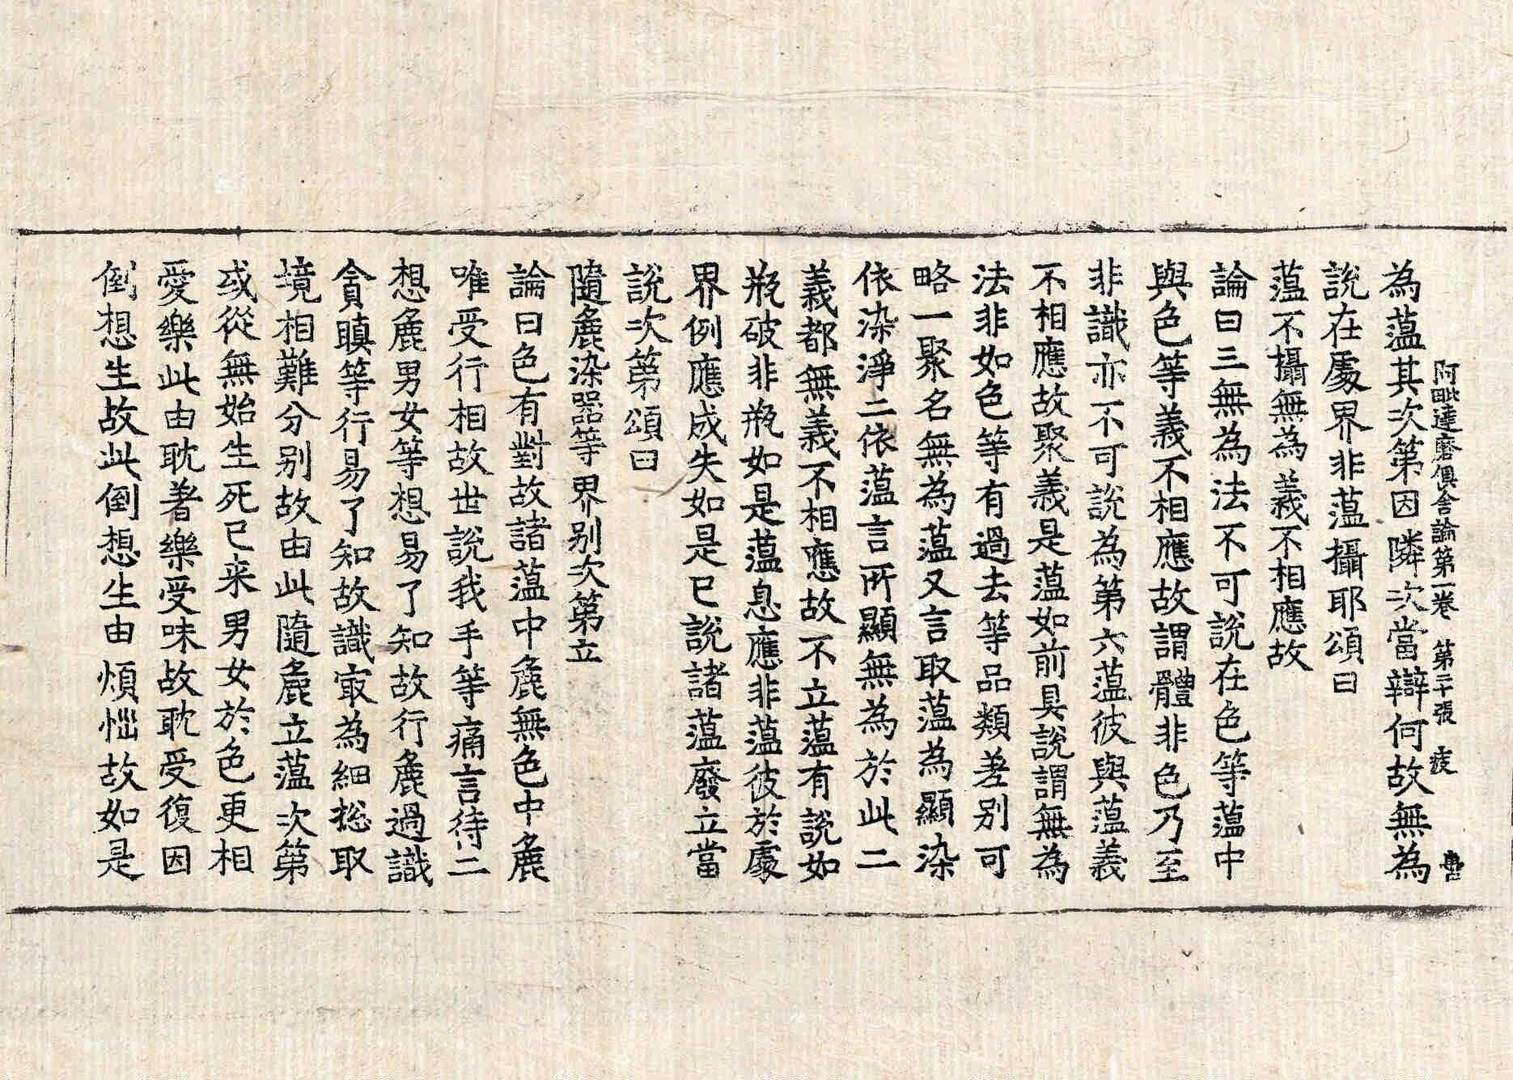 阿毗達磨俱舍論第一卷 第二十張 疲
為蘊其次第因隣次當辯何故無為
說在處界非蘊攝耶頌曰
蘊不攝無為 義不相應故
論曰三無為法不可說在色等蘊中
與色等義不相應故謂體非色乃至
非識亦不可說為第六蘊彼與蘊義
不相應故聚義是蘊如前具說謂無為
法非如色等有過去等品類差別可
略一聚名無為蘊又言取蘊為顯染
依染淨二依蘊言所顯無為於此二
義都無義不相應故不立蘊有說如
瓶破非瓶如是蘊息應非蘊彼於處
界例應成失如是已說諸蘊廢立當
說次第頌曰
隨麁染器等 界別次第立
論曰色有對故諸蘊中麁無色中麁
唯受行相故世說我手等痛言待二
想麁男女等想易了知故行麁過識
貪瞋等行易了知故識㝡為細揔取
境相難分別故由此隨麁立蘊次第
或從無始生死已来男女於色更相
愛樂此由耽著樂受味故耽受復因
倒想生故此倒想生由煩惱故如是